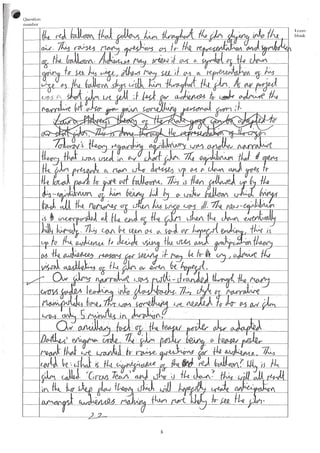 Question number
Leave blank
the red balloon that follows him throughout the film flying into the
air. This raises many questions as to the representation and symbolism
of the balloon. Audiences may see it as a symbol of the clown
going to see his wife, others may see it as a representation of his
wife as the balloon stays with him throughout the film. As our project
was a short film we felt it best for audiences to admire the
narrative but also gain something personal from it.
Laura Mulveys theory of the male gaze can be adapted to
our short film. This is done through the representation of the
Todorov's theory regarding equilibrium was another narrative
theory that was used in our short film. The equilibrium that opens
the film presents a man who dresses up as a clown and goes to
the local park to give out balloons. This is then followed up by the
dis-equilibrium of him being hit by a water balloon which brings
back all the memories of when his wife was ill. The new-equilibrium
is incorporated at the end of the film when the clown eventually
kills himself. This can be seen as a sad or hopeful ending, this is
up to the audience to decide using the uses and gratification theory
as the audiences reasons for seeing it may be to cry, admire the
visual aesthetics of the film or even be hopeful.
Our films narrative was multi-stranded through the many
cross fades leading into flashbacks. This style of narrative
manipulates time. This was something we needed to do as our film
was only 5 minutes in duration.
Our ancillary task of the teaser poster also adapted
Barthes' enigma code. The film poster being a teaser poster
meant that we wanted to raise questions for the audience. This
could be: what is the significance of the red balloon? Why is the
film called "Circus Tears" and who is the clown? this will all result
in the two step flow theory which will hopefully create anticipation
amongst audiences making them more likely to see the film.